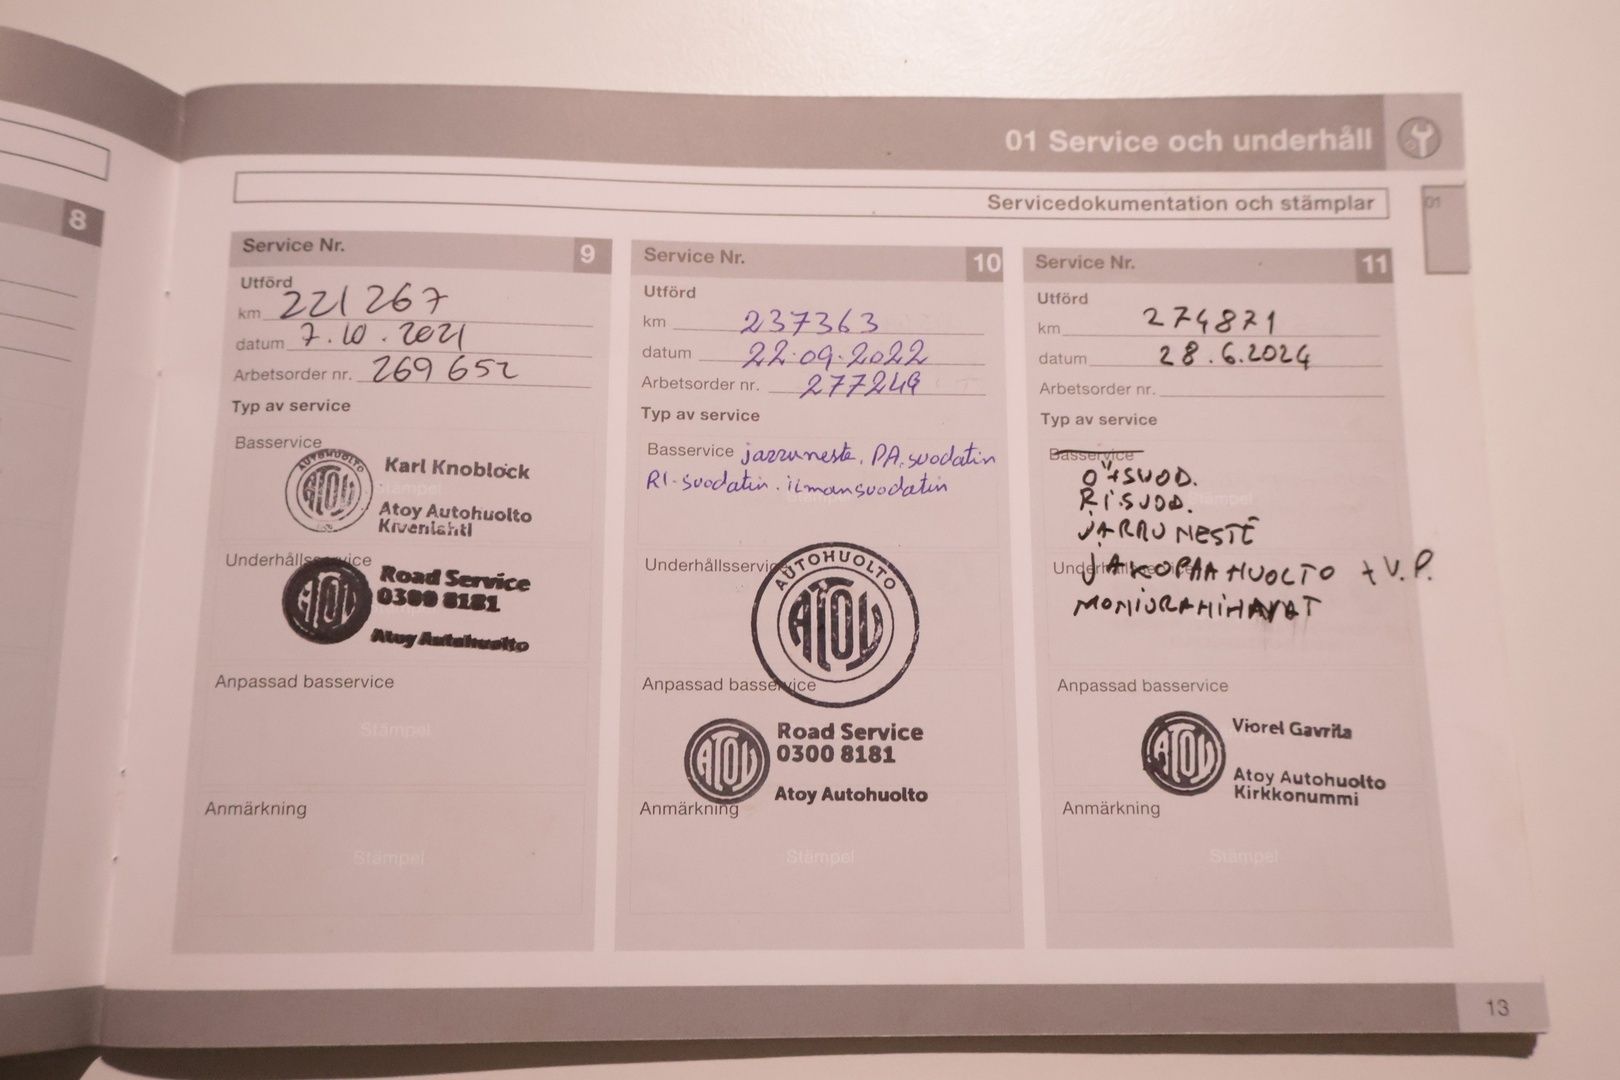 01 Service och underhåll
Servicedokumentation och stämplar
01
8
Service Nr. 9
Utförd
km 221 267
datum 7.10.2021
Arbetsorder nr. 269 652
Typ av service
Basservice
AUTOHUOLTO
ATOY
Karl Knoblock
Stämpel
Atoy Autohuolto
Kivenlahti
Underhållsservice
ATOY
Road Service
0300 8181
Atoy Autohuolto
Anpassad basservice
Stämpel
Anmärkning
Stämpel
Service Nr. 10
Utförd
km 237363
datum 22.09.2022
Arbetsorder nr. 277249
Typ av service
Basservice jarruneste, PA.suodatin
RI-suodatin. ilmansuodatin
Underhållsservice
AUTOHUOLTO
ATOY
Anpassad basservice
ATOY
Road Service
0300 8181
Atoy Autohuolto
Anmärkning
Stämpel
Service Nr. 11
Utförd
km 274871
datum 28.6.2024
Arbetsorder nr.
Typ av service
Basservice
Stämpel
RI.SUOD.
JARRUNESTE
Underhållsservice
JAKOPÄÄHUOLTO + V.P.
MONIURAHIHNAT
Anpassad basservice
ATOY
Viorel Gavrila
Atoy Autohuolto
Kirkkonummi
Anmärkning
Stämpel
13